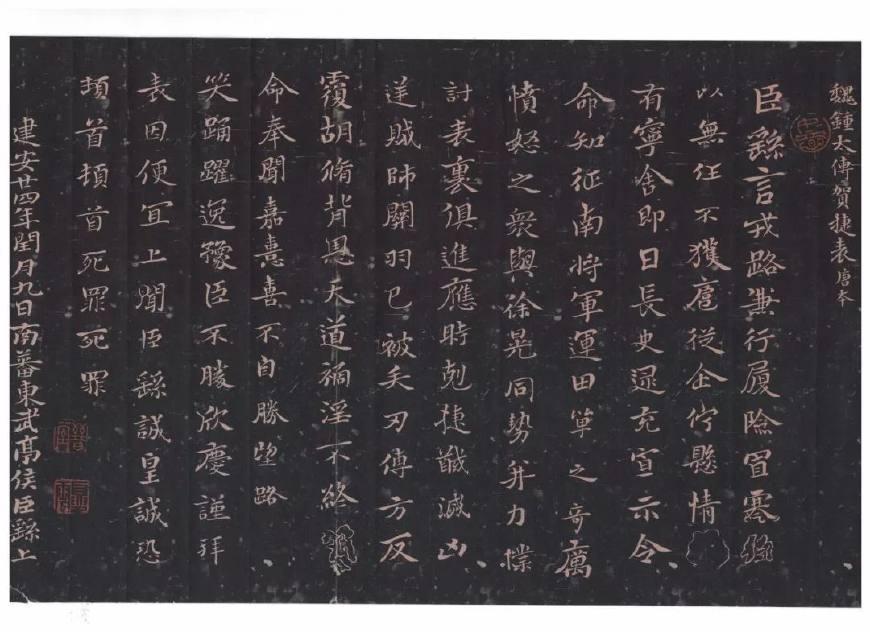 魏鍾太傅賀捷表唐本
臣繇言戎路兼行履險冒寒臣
以無任不獲扈從企佇懸情
有寧舍即日長史逯充宣示令
命知征南將軍運田單之奇厲
憤怒之衆與徐晃同勢并力撲
討表裏俱進應時剋捷馘滅凶
逆賊帥關羽已被矢刃傅方反
覆胡脩背恩天道禍淫不終
命奉聞嘉憙喜不自勝望路
笑踊躍逸豫臣不勝欣慶謹拜
表因便宜上聞臣繇誠皇誠恐
頓首頓首死罪死罪
建安廿四年閏月九日南蕃東武亭侯臣繇上